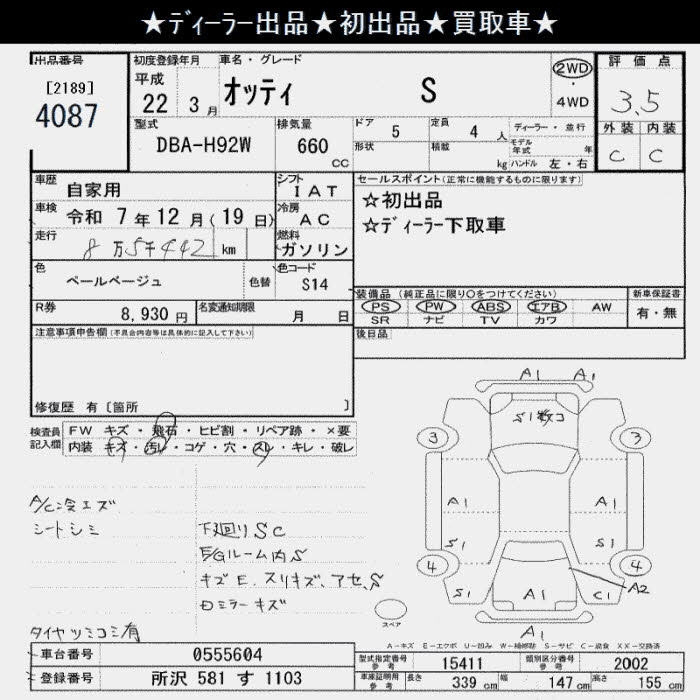 ★ディーラー出品★初出品★買取車★
出品番号
[2189]
4087
初度登録年月
平成
22 3月
車名・グレード
オッティ S
2WD
・
4WD
評価点
3.5
外装 内装
C C
型式
DBA-H92W
排気量
660
CC
ドア
5
形状
定員
4人
積載
kg
ディーラー・並行
モデル
年式 年
ハンドル 左・右
車歴
自家用
車検
令和 7年12月(19日)
走行
8万5千442 km
色
ペールベージュ
色替
シフト
IAT
冷房
AC
燃料
ガソリン
色コード
S14
R券
8,930円
名変通知期限
月 日
セールスポイント(正常に機能するものに限ります)
☆初出品
☆ディーラー下取車
装備品(純正品に限り○をつけてください)
PS PW ABS エアB AW
SR ナビ TV カワ
新車保証書
有・無
後日品
注意事項申告欄(不具合内容等は具体的に記入して下さい)
修復歴 有〔箇所 〕
検査員
記入欄
FW キズ・飛石・ヒビ割・リペア跡・×要
内装 キズ・汚レ・コゲ・穴・スレ・キレ・破レ
A/C冷エズ
シートシミ
下廻りSC
E/Gルーム内S
キズE.スリキズ、アセ、S
ロミラーキズ
タイヤツミコミ有
A1 A1
S1数コ
3 3
A1 A1
S1 S1
4 4
A2
S1 A1 C1
A1
スペア
A-キズ E-エクボ U-凹み W-補修跡 S-サビ C-腐食 XX-交換済
車台番号
0555604
登録番号
所沢 581 す 1103
型式指定番号
参考
15411
類別区分番号
参考
2002
車庫証明用
参考
長さ
339 cm
幅
147 cm
高さ
155 cm